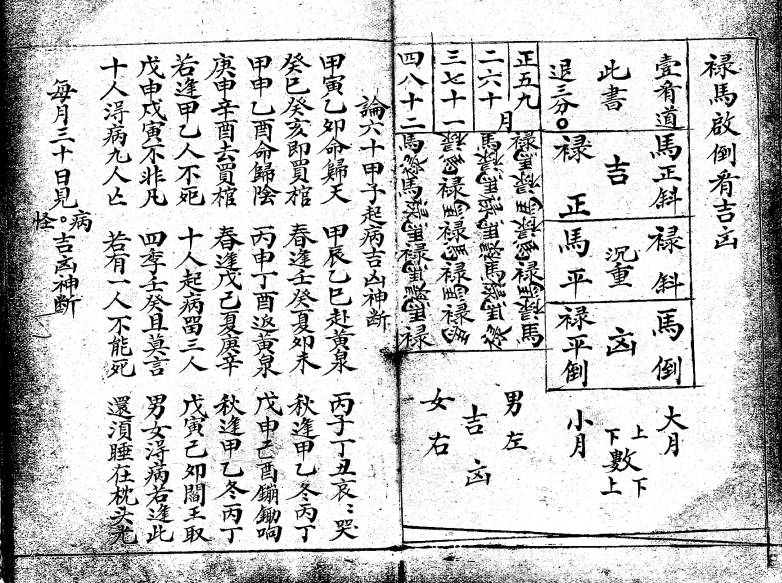 禄馬啟倒肴吉凶
壹肴道 馬正斜 禄斜 馬倒
此書 吉 沉重 凶
退三分。 禄正 馬平 禄平倒
正五九月
二六十
三七十一
四八十二
大月 上數下
小月 下數上
男左
吉凶
女右
論六十甲子起病吉凶神断
甲寅乙卯命歸天 甲辰乙巳赴黃泉 丙子丁丑哀〻哭
癸巳癸亥即買棺 春逢壬癸夏卯未 秋逢甲乙冬丙丁
甲申乙酉命歸陰 丙申丁酉返黃泉 戊申己酉鑼鋤响
庚申辛酉去買棺 春逢戊己夏庚辛 秋逢甲乙冬丙丁
若逢甲乙人不死 十人起病畱三人 戊寅己卯閻王取
戊申戍寅不非凡 四季壬癸且莫言 男女淂病若逢此
十人淂病九人亡 若有一人不能死 還須睡在枕头
每月三十日見病怪。吉凶神断